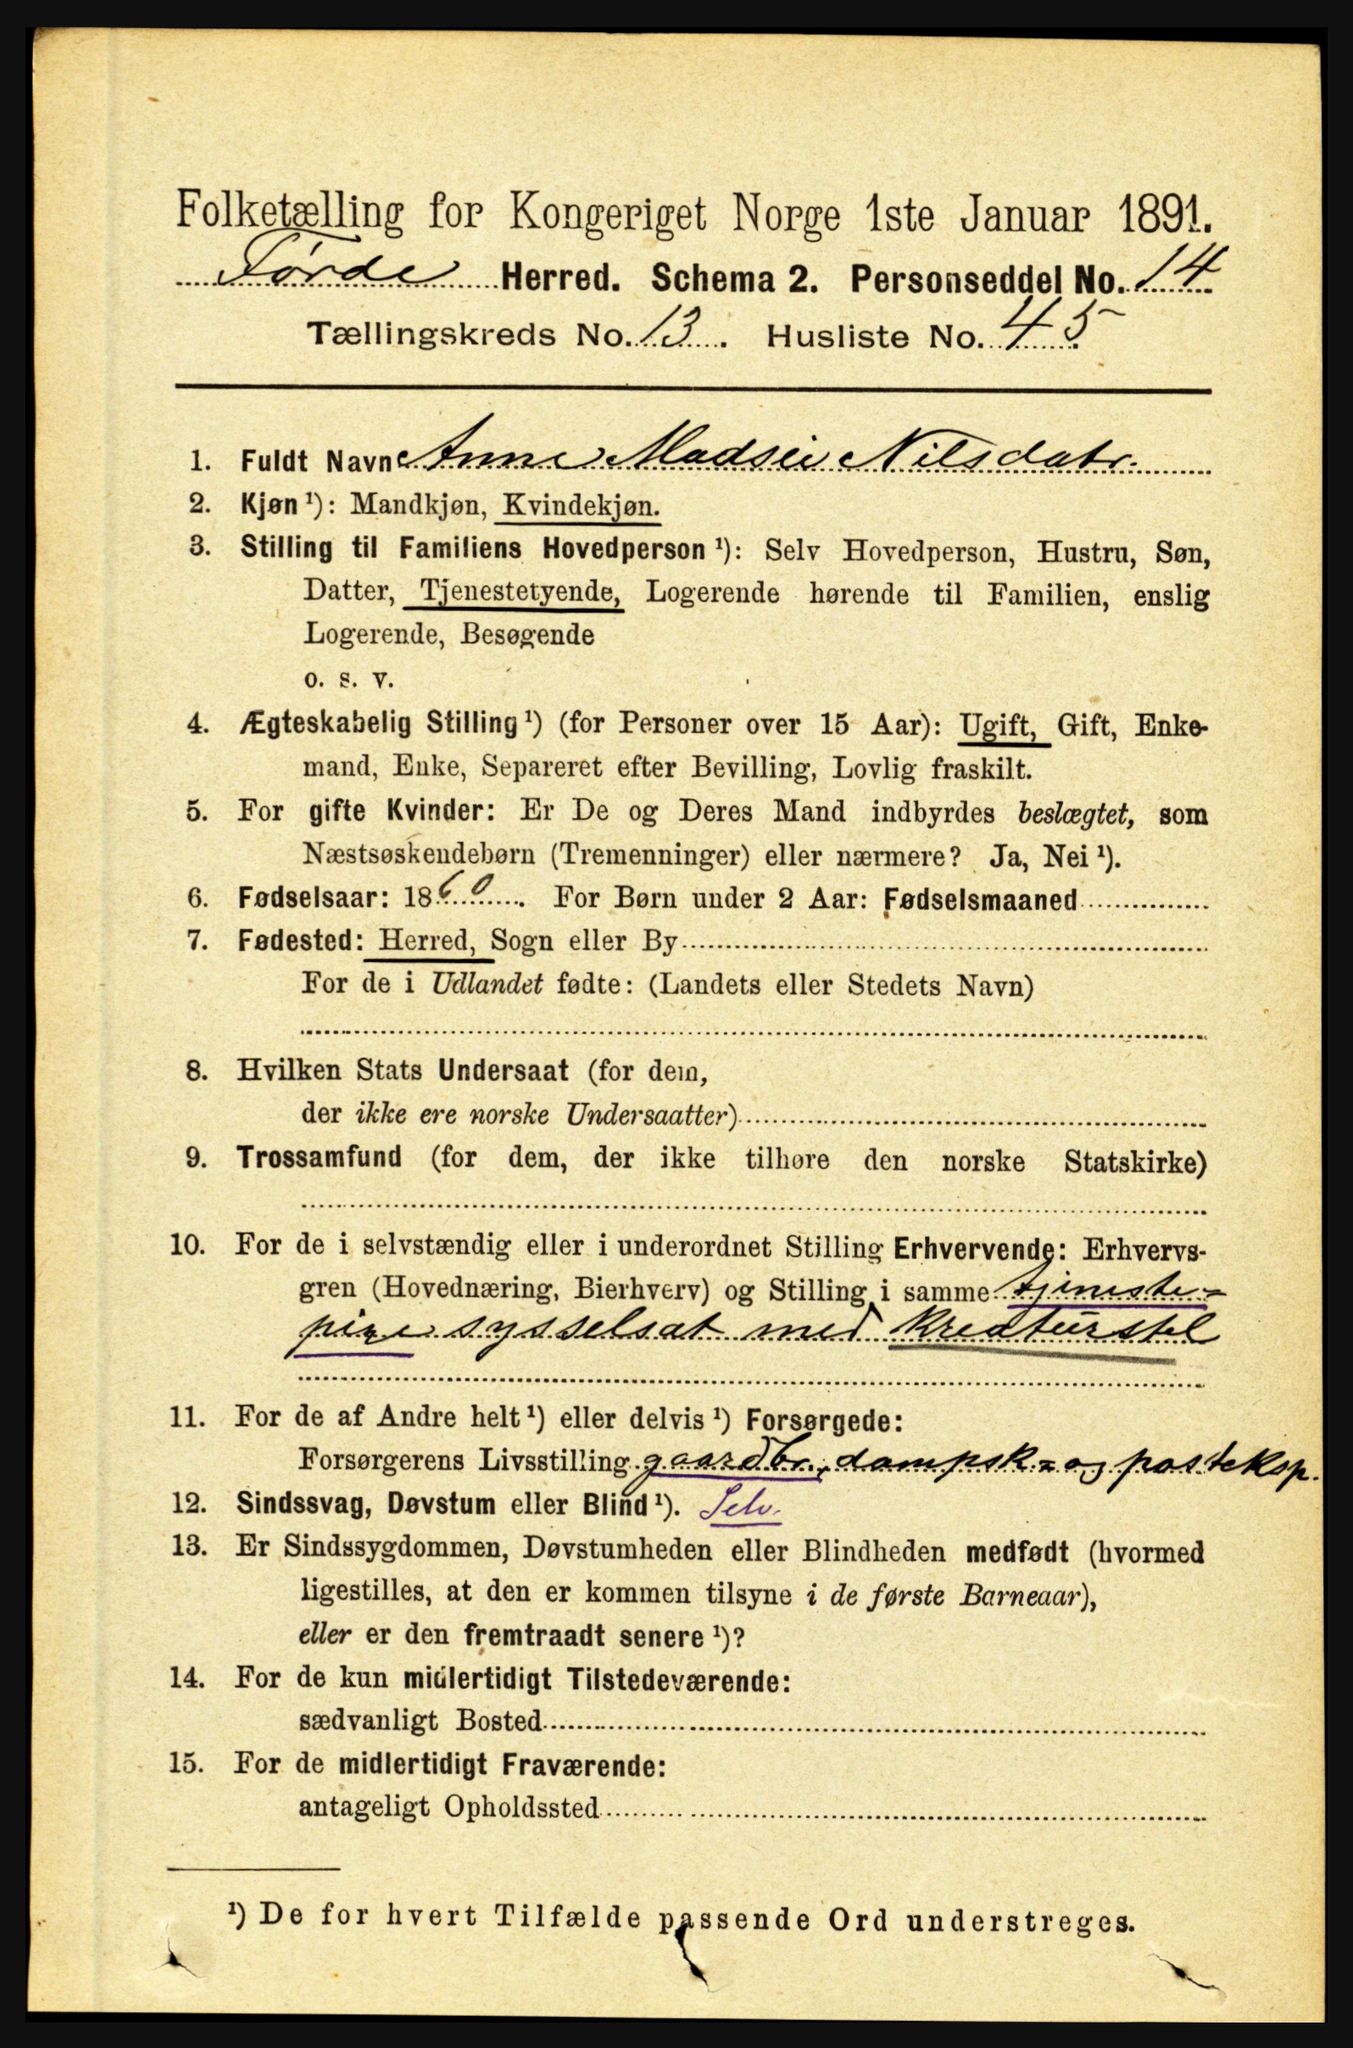 Folketælling for Kongeriget Norge 1ste Januar 1891.
Førde Herred. Schema 2. Personseddel No. 14
Tællingskreds No. 13. Husliste No. 45
1. Fuldt Navn Anne Madsei Nilsdatr.
2. Kjøn ¹): Mandkjøn, Kvindekjøn.
3. Stilling til Familiens Hovedperson ¹): Selv Hovedperson, Hustru, Søn,
Datter, Tjenestetyende, Logerende hørende til Familien, enslig
Logerende, Besøgende
o. s. v.
4. Ægteskabelig Stilling ¹) (for Personer over 15 Aar): Ugift, Gift, Enke-
mand, Enke, Separeret efter Bevilling, Lovlig fraskilt.
5. For gifte Kvinder: Er De og Deres Mand indbyrdes beslægtet, som
Næstsøskendebørn (Tremenninger) eller nærmere? Ja, Nei ¹).
6. Fødselsaar: 1860. For Børn under 2 Aar: Fødselsmaaned
7. Fødested: Herred, Sogn eller By
For de i Udlandet fødte: (Landets eller Stedets Navn)
8. Hvilken Stats Undersaat (for dem,
der ikke ere norske Undersaatter)
9. Trossamfund (for dem, der ikke tilhøre den norske Statskirke)
10. For de i selvstændig eller i underordnet Stilling Erhvervende: Erhvervs-
gren (Hovednæring, Bierhverv) og Stilling i samme tjeneste-
pige sysselsat med kreaturstel
11. For de af Andre helt ¹) eller delvis ¹) Forsørgede:
Forsørgerens Livsstilling gaardbr., dampsk- og posteksp.
12. Sindssvag, Døvstum eller Blind ¹). Selv.
13. Er Sindssygdommen, Døvstumheden eller Blindheden medfødt (hvormed
ligestilles, at den er kommen tilsyne i de første Barneaar),
eller er den fremtraadt senere ¹)?
14. For de kun midlertidigt Tilstedeværende:
sædvanligt Bosted
15. For de midlertidigt Fraværende:
antageligt Opholdssted
¹) De for hvert Tilfælde passende Ord understreges.